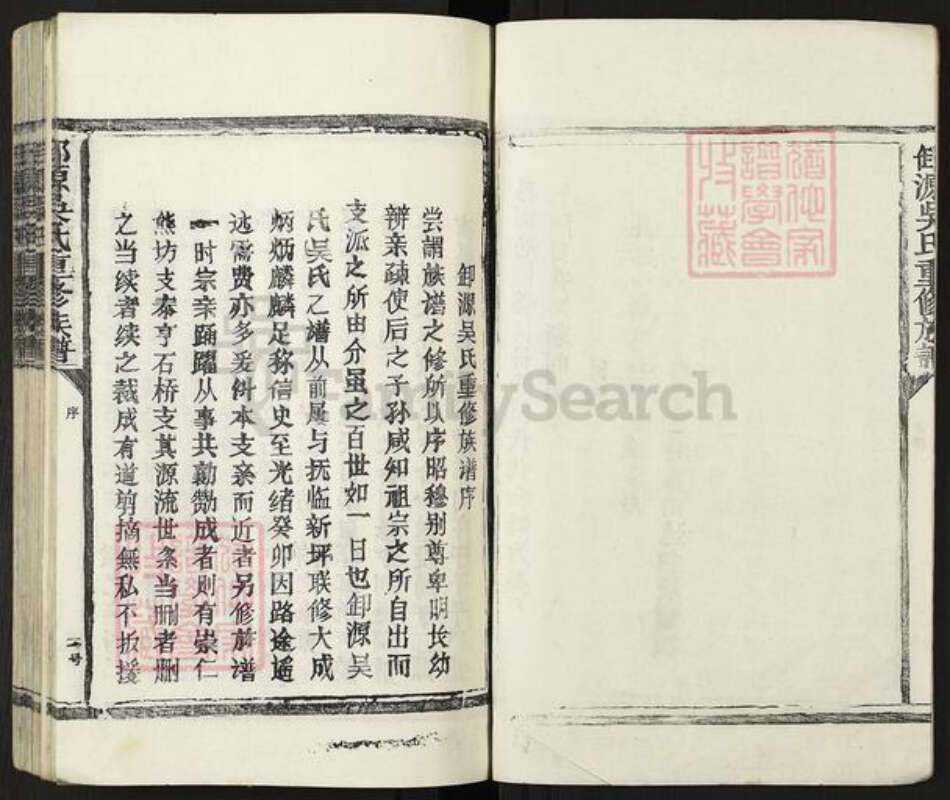 卸源吴氏重修族譜
猶他家
譜學會
收藏
卸源吴氏重修族谱序
尝谓族谱之修所以序昭穆别尊卑明长幼
辨亲疎使后之子孙咸知祖宗之所自出而
支派之所由分虽之百世如一日也卸源吴
氏吴氏之谱从前屡与抚临新坪联修大成
炳炳麟麟足称信史至光绪癸卯因路途遥
远需费亦多爰纠本支亲而近者另修族谱
一时宗亲踊躍从事共勷勷成者则有崇仁
熊坊支泰亨石桥支其源流世系当删者删
之当续者续之裁成有道剪摘無私不扳援
卸源吴氏重修族譜
序
一号
FamilySearch